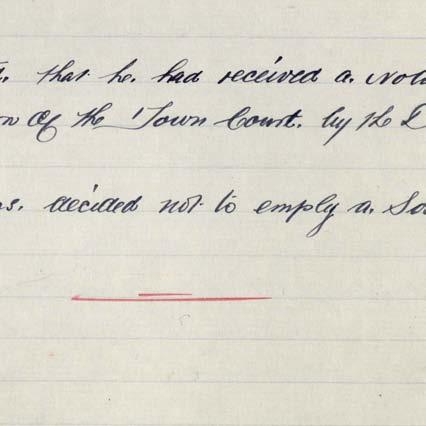 that he. had received a. Noti
on Of the Town Court. by the D
s. decided not to emply a. So